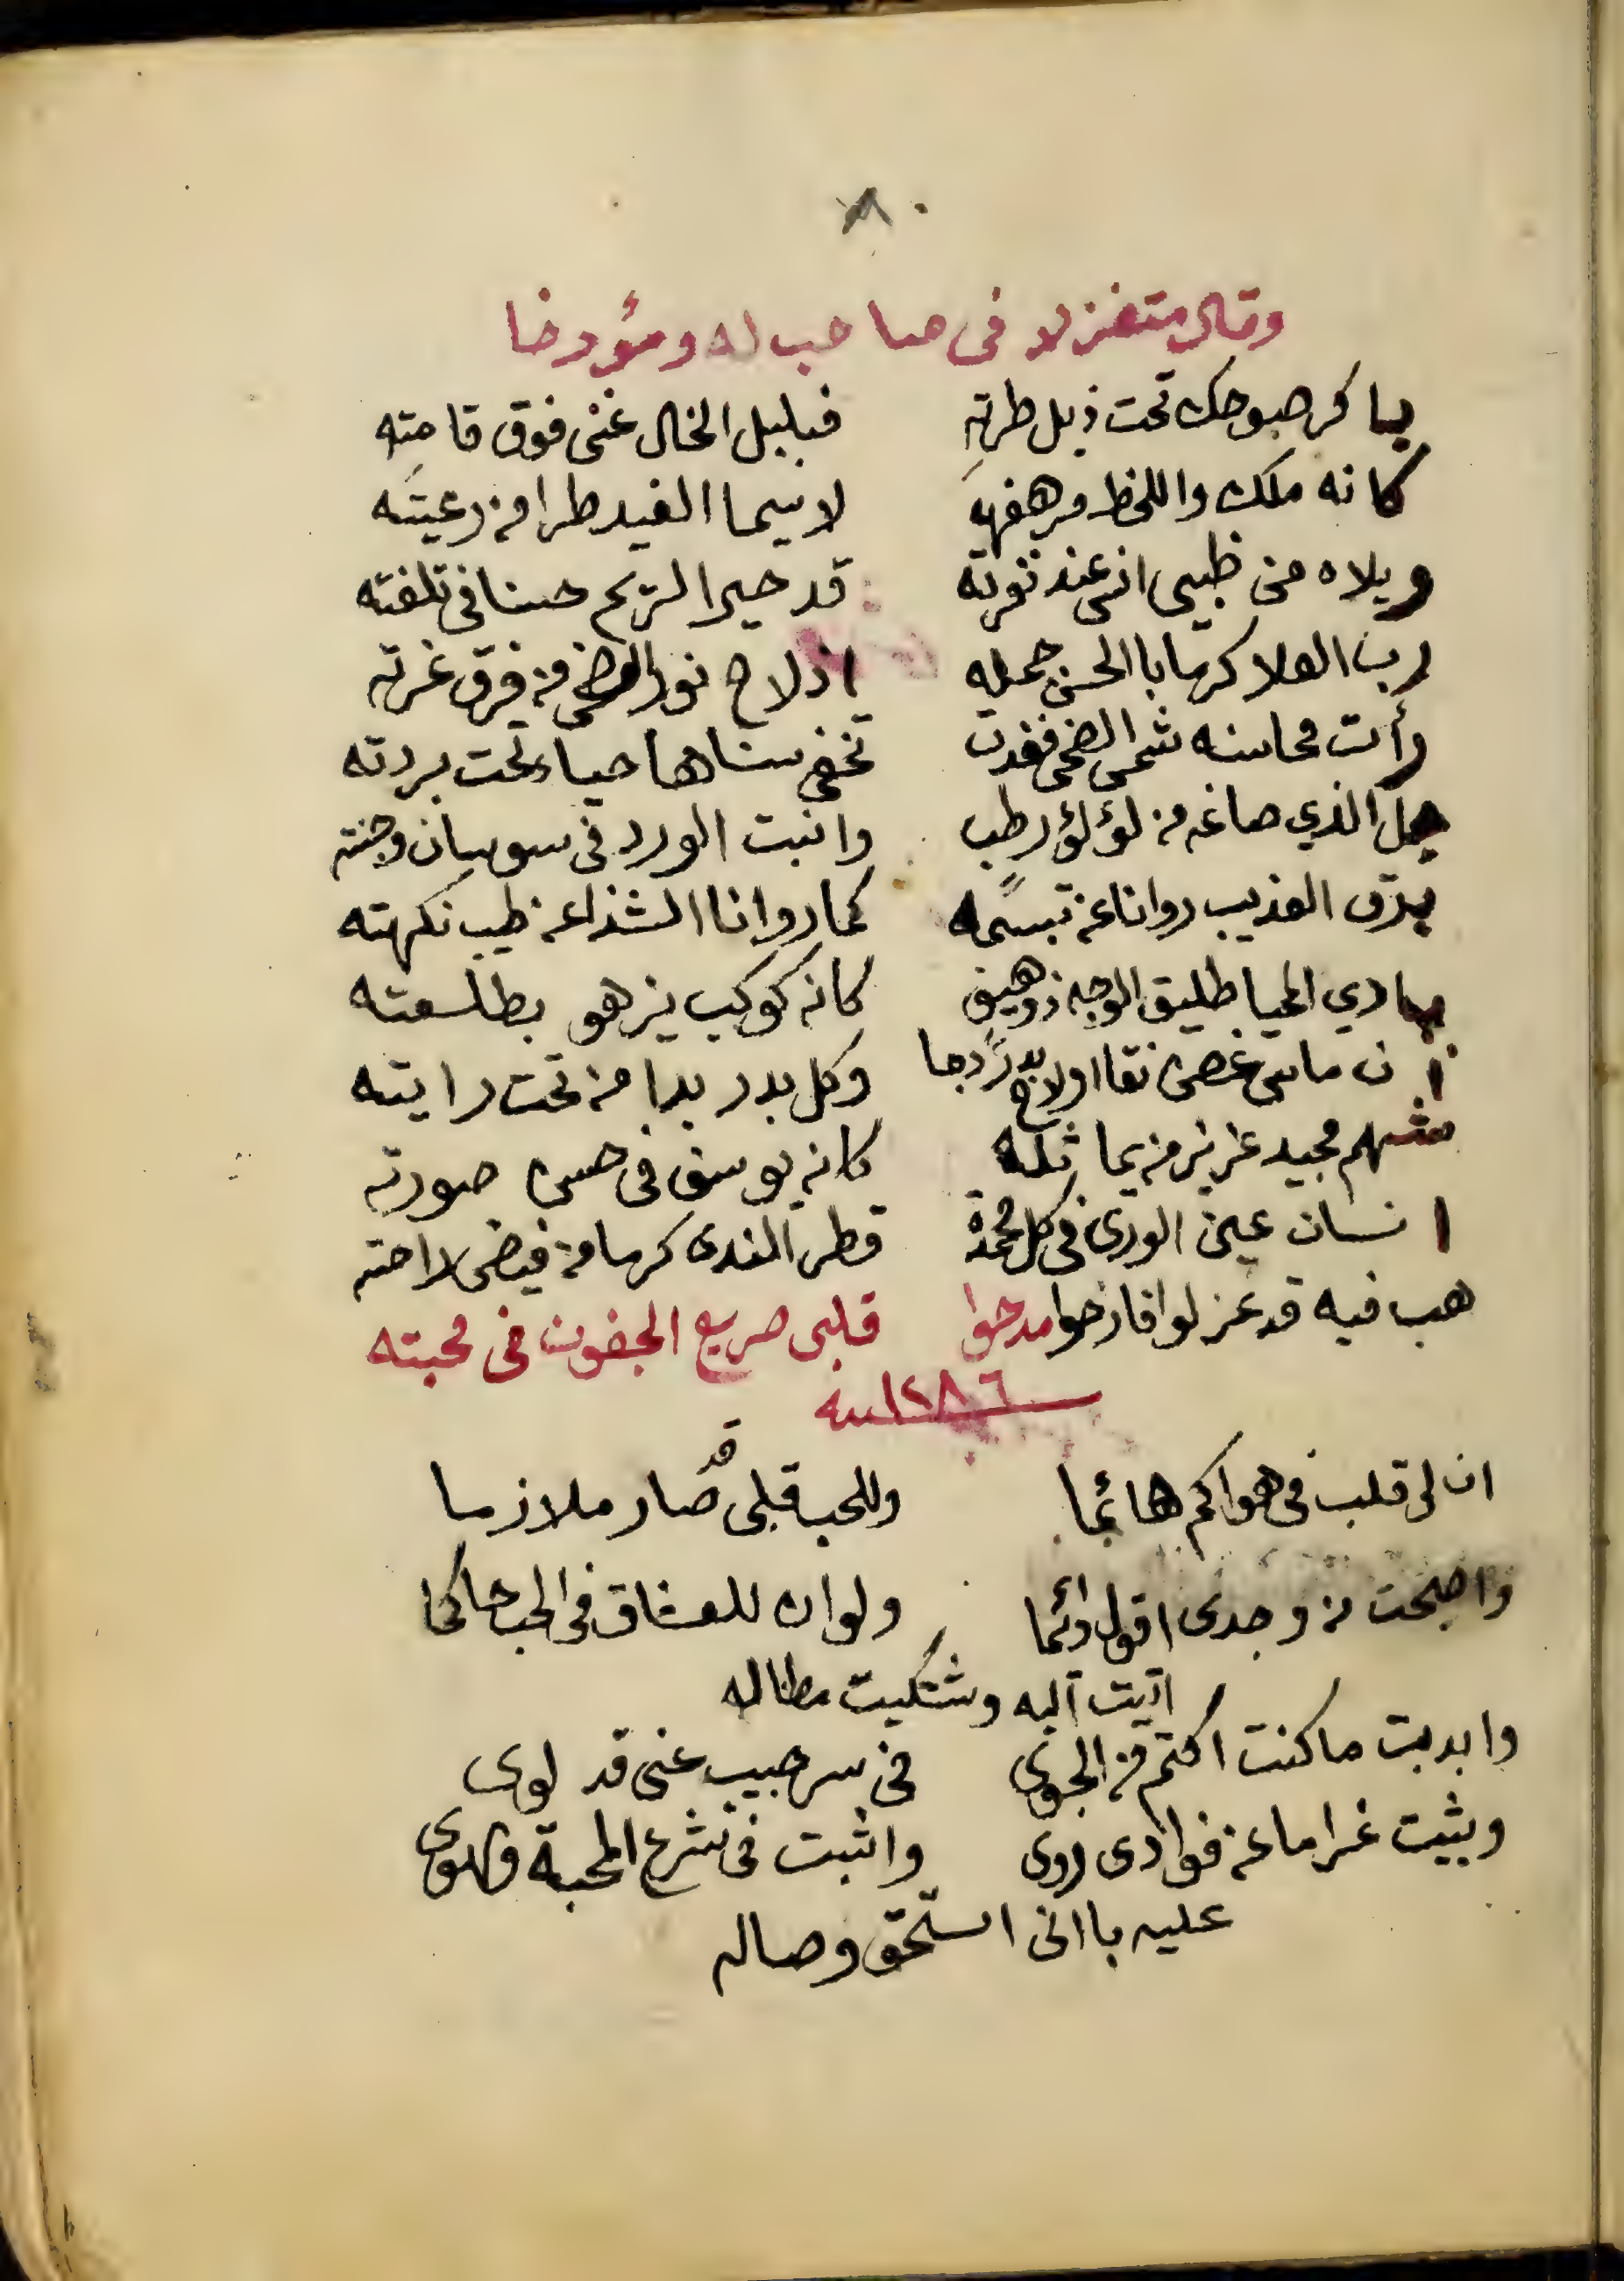 ٨٠
وقال متغزلا في صاحب له ومؤرخا
باكر صبوحك تحت ذيل طرته فبلبل الخال غنى فوق قامته
كانه ملك واللحظ مرهفه لا سيما الغيد طرا من رعيته
ويلاه من ظبي انس عند نفرته قد حير الريم حسنا في تلفته
رب العلا كرما باالحسن جمله اذ لاح نور الضحى من فرق غرته
رأت محاسنه شمس الضحى فغدت تخفي سناها حياء تحت بردته
جل الذي صاغه من لؤلؤ رطب وانبت الورد في سوسان وجنته
برق العذيب روانا عن تبسمه كما روانا الشذا عن طيب نكهته
بادي المحيا طليق الوجه ذو هيف كانه كوكب يزهو بطلعته
ان ماس غصن نقا او لاح بدر دجا وكل بدر بدا من تحت رايته
شهم مجيد عزيز من يماثله كانه يوسف في حسن صورته
انسان عين الورى في كل محمدة قطر الندى كرما من فيض راحته
هب فيه قد غزلوا فارخوا مدحوا قلبي صريع الجفون في محبته
سنه ١٢٨٦
ان لي قلب في هواكم هائما وللحب قلبي قد صار ملازما
واصبحت من وجدى اقول دائما ولو ان للعشاق في الحب حاكما
اتيت اليه وشتكيت مطاله
وابديت ما كنت اكتم من الجوى في سر حبيب عني قد لوى
وبثيت غراما عن فوادى روى واثبت في شرع المحبة والهوى
عليه باانى استحق وصاله